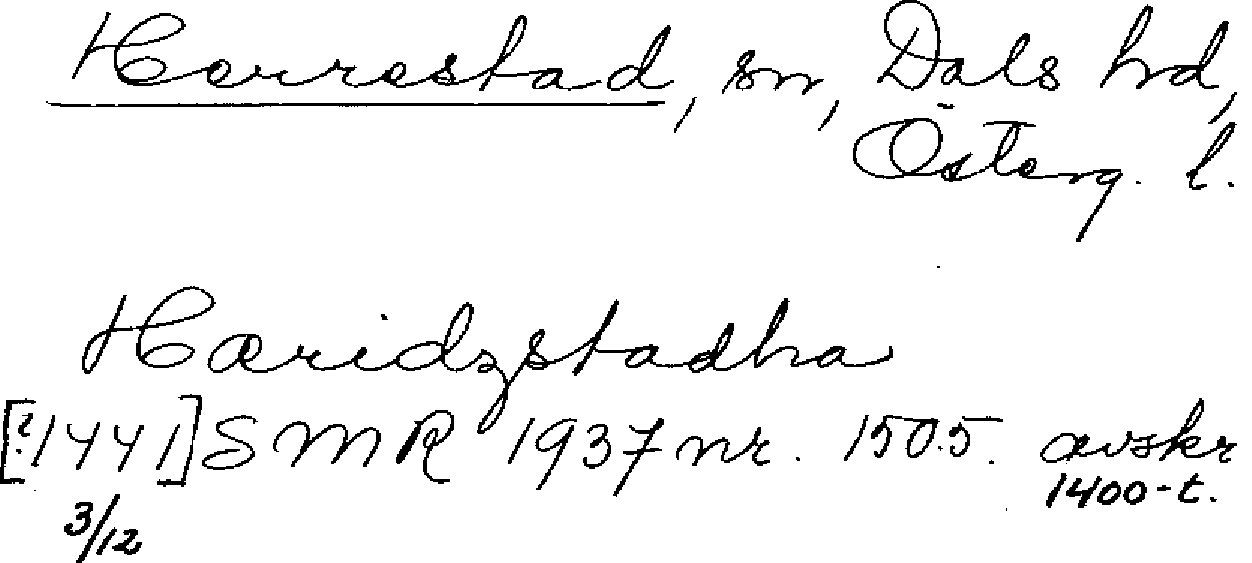 Herrestad, sn, Dals hd,
Österg. l.
Hæridzstadha
[?1441] SMR 1937 nr. 1505. avskr
3/12 1400-t.